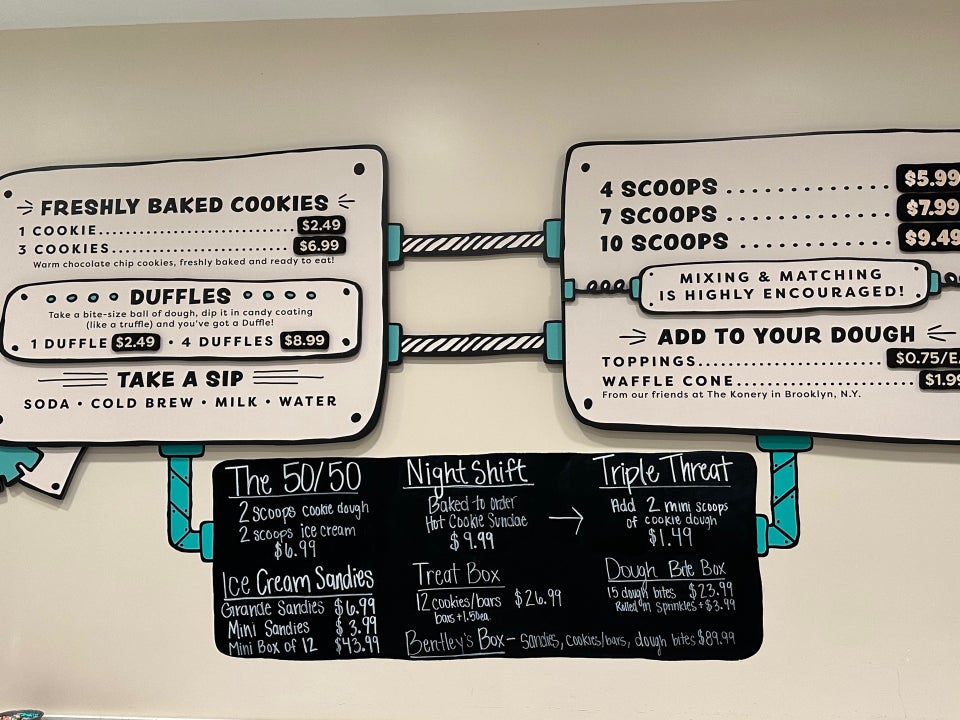 FRESHLY BAKED COOKIES
1 COOKIE............................$2.49
3 COOKIES..........................$6.99
Warm chocolate chip cookies, freshly baked and ready to eat!
DUFFLES
Take a bite-size ball of dough, dip it in candy coating
(like a truffle) and you've got a Duffle!
1 DUFFLE $2.49 • 4 DUFFLES $8.99
TAKE A SIP
SODA • COLD BREW • MILK • WATER
4 SCOOPS..............$5.99
7 SCOOPS..............$7.99
10 SCOOPS.............$9.49
MIXING & MATCHING
IS HIGHLY ENCOURAGED!
ADD TO YOUR DOUGH
TOPPINGS........................$0.75/EA
WAFFLE CONE........................$1.99
From our friends at The Konery in Brooklyn, N.Y.
The 50/50
2 scoops cookie dough
2 scoops ice cream
$6.99
Ice Cream Sandies
Grande Sandies $6.99
Mini Sandies $3.99
Mini Box of 12 $43.99
Night Shift
Baked to order
Hot Cookie Sundae →
$9.99
Treat Box
12 cookies/bars $26.99
bars +1.50ea.
Triple Threat
Add 2 mini scoops
of cookie dough
$1.49
Dough Bite Box
15 dough bites $23.99
Rolled in sprinkles +$3.99
Bentley's Box – sandies, cookies/bars, dough bites $89.99